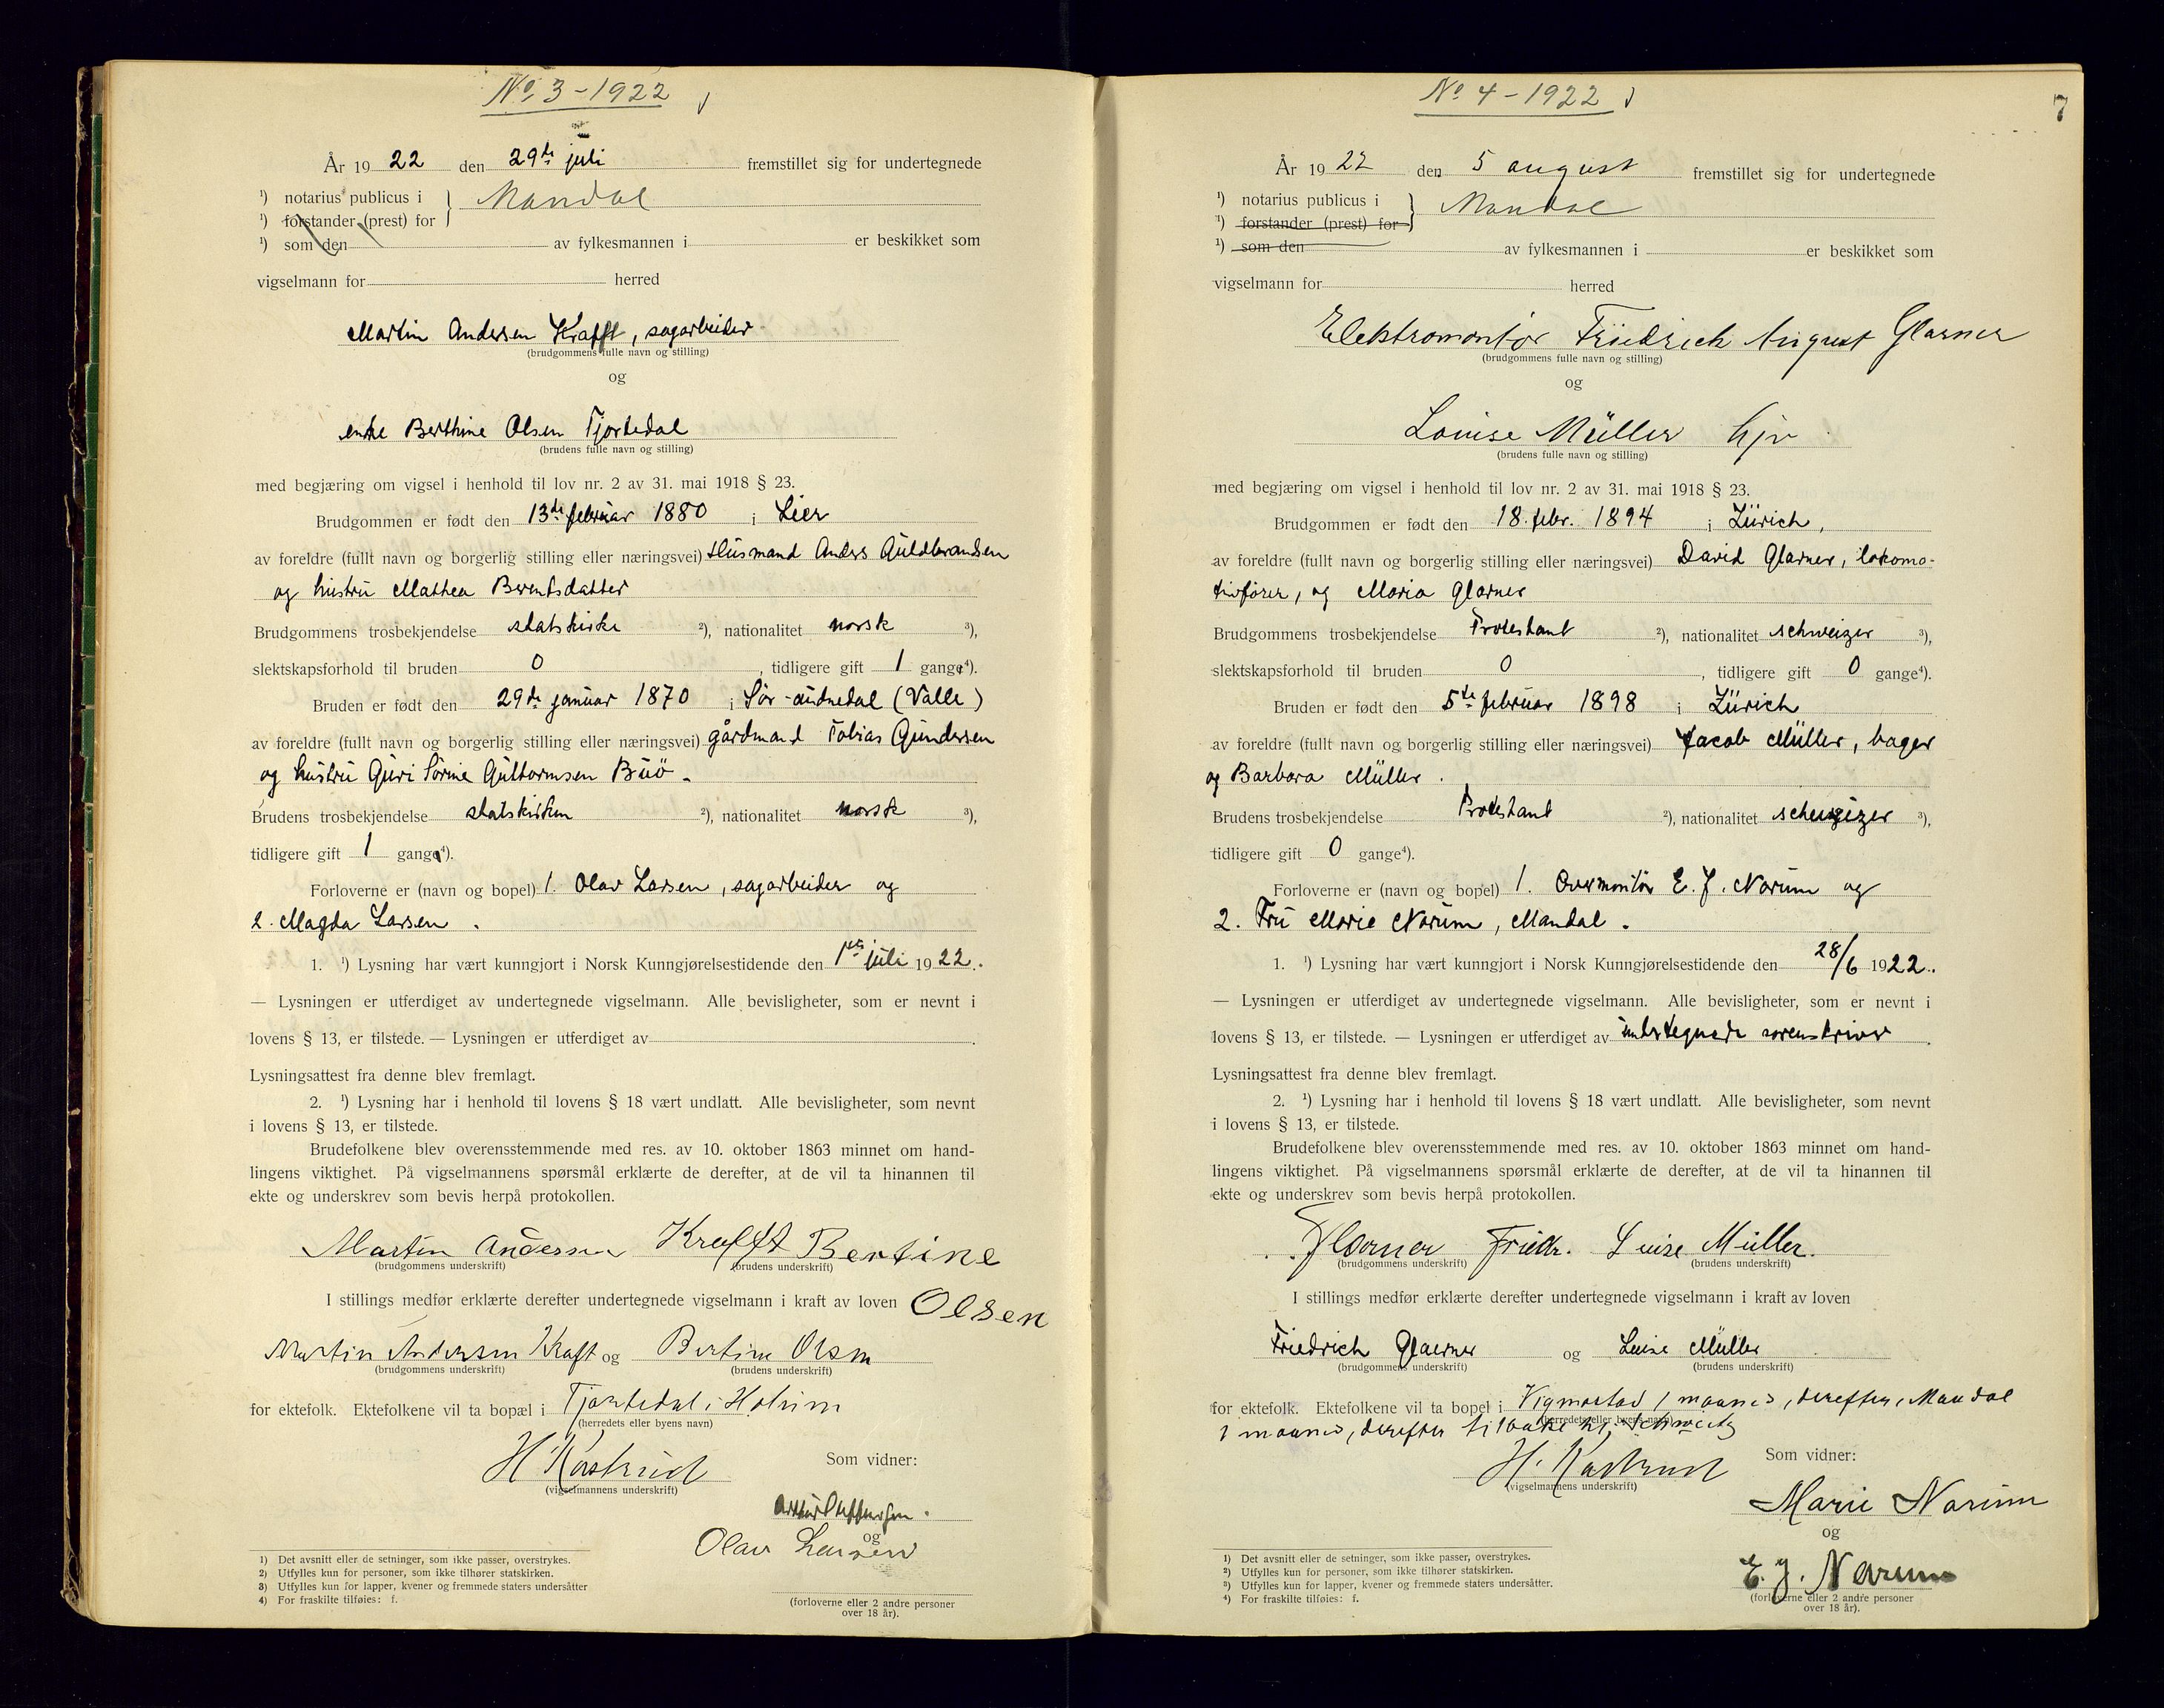 No. 3 - 1922
År 19 22 den 29de juli fremstillet sig for undertegnede
¹) notarius publicus i } Mandal
¹) forstander (prest) for
¹) som den av fylkesmannen i er beskikket som
vigselmann for herred
Martin Andersen Krafft, sagarbeider
(brudgommens fulle navn og stilling)
og
enke Berthine Olsen Tjortedal
(brudens fulle navn og stilling)
med begjæring om vigsel i henhold til lov nr. 2 av 31. mai 1918 § 23.
Brudgommen er født den 13de februar 1880 i Lier
av foreldre (fullt navn og borgerlig stilling eller næringsvei) Husmand Anders Guldbrandsen
og hustru Mathea Berntsdatter
Brudgommens trosbekjendelse statskirke ²), nationalitet norsk ³),
slektskapsforhold til bruden 0, tidligere gift 1 gang⁴).
Bruden er født den 29de januar 1870 i Sør-audnedal (Valle)
av foreldre (fullt navn og borgerlig stilling eller næringsvei) gårdmand Tobias Gundersen
og hustru Guri Sørine Guttormsen Buø.
Brudens trosbekjendelse statskirken ²), nationalitet norsk ³),
tidligere gift 1 gang⁴).
Forloverne er (navn og bopel) 1. Olav Larsen, sagarbeider og
2. Magda Larsen.
1. ¹) Lysning har vært kunngjort i Norsk Kunngjørelsestidende den 1ste juli 1922.
— Lysningen er utferdiget av undertegnede vigselmann. Alle bevisligheter, som er nevnt i
lovens § 13, er tilstede. — Lysningen er utferdiget av .
Lysningsattest fra denne blev fremlagt.
2. ¹) Lysning har i henhold til lovens § 18 vært undlatt. Alle bevisligheter, som nevnt
i lovens § 13, er tilstede.
Brudefolkene blev overensstemmende med res. av 10. oktober 1863 minnet om hand-
lingens viktighet. På vigselmannens spørsmål erklærte de derefter, at de vil ta hinannen til
ekte og underskrev som bevis herpå protokollen.
Martin Andersen Krafft Bertine
(brudgommens underskrift) (brudens underskrift)
I stillings medfør erklærte derefter undertegnede vigselmann i kraft av loven Olsen
Martin Andersen Kraft og Bertine Olsen
(brudgommens underskrift) (brudens underskrift)
for ektefolk. Ektefolkene vil ta bopæl i Tjortedal i Holum
(herredets eller byens navn)
H. Kastrud Som vidner:
(vigselmannens underskrift)
og
Olav Larsen
1) Det avsnitt eller de setninger, som ikke passer, overstrykes.
2) Utfylles kun for personer, som ikke tilhører statskirken.
3) Utfylles kun for lapper, kvener og fremmede staters undersåtter
4) For fraskilte tilføies: f.
(forloverne eller 2 andre personer
over 18 år).
No. 4 - 1922
7
År 19 22 den 5 august fremstillet sig for undertegnede
¹) notarius publicus i } Mandal
¹) forstander (prest) for
¹) som den av fylkesmannen i er beskikket som
vigselmann for herred
Elektromontør Friedrich August Glarner
(brudgommens fulle navn og stilling)
og
Louise Müller hjv
(brudens fulle navn og stilling)
med begjæring om vigsel i henhold til lov nr. 2 av 31. mai 1918 § 23.
Brudgommen er født den 18. febr. 1894 i Zürich,
av foreldre (fullt navn og borgerlig stilling eller næringsvei) David Glarner, lokomo-
tivfører, og Maria Glarner
Brudgommens trosbekjendelse Protestant ²), nationalitet schweizer ³),
slektskapsforhold til bruden 0, tidligere gift 0 gange⁴).
Bruden er født den 5te februar 1898 i Zürich
av foreldre (fullt navn og borgerlig stilling eller næringsvei) Jacob Müller, bager
og Barbara Müller.
Brudens trosbekjendelse Protestant ²), nationalitet schweizer ³),
tidligere gift 0 gange⁴).
Forloverne er (navn og bopel) 1. Overmontør E. J. Narum og
2. Fru Marie Narum, Mandal.
1. ¹) Lysning har vært kunngjort i Norsk Kunngjørelsestidende den 28/6 1922.
— Lysningen er utferdiget av undertegnede vigselmann. Alle bevisligheter, som er nevnt i
lovens § 13, er tilstede. — Lysningen er utferdiget av undertegnede sorenskriver.
Lysningsattest fra denne blev fremlagt.
2. ¹) Lysning har i henhold til lovens § 18 vært undlatt. Alle bevisligheter, som nevnt
i lovens § 13, er tilstede.
Brudefolkene blev overensstemmende med res. av 10. oktober 1863 minnet om hand-
lingens viktighet. På vigselmannens spørsmål erklærte de derefter, at de vil ta hinannen til
ekte og underskrev som bevis herpå protokollen.
Glarner Friedr. Luise Müller.
(brudgommens underskrift) (brudens underskrift)
I stillings medfør erklærte derefter undertegnede vigselmann i kraft av loven
Friedrich Glarner og Luise Müller
(brudgommens underskrift) (brudens underskrift)
for ektefolk. Ektefolkene vil ta bopel i Vigmostad 1 maaned, derefter i Mandal
(herredets eller byens navn)
1 maaned, derefter tilbake til Schweitz
H. Kastrud Som vidner:
(vigselmannens underskrift)
Marie Narum
og
E. J. Narum
(forloverne eller 2 andre personer
over 18 år).
1) Det avsnitt eller de setninger, som ikke passer, overstrykes.
2) Utfylles kun for personer, som ikke tilhører statskirken.
3) Utfylles kun for lapper, kvener og fremmede staters undersåtter.
4) For fraskilte tilføies: f.